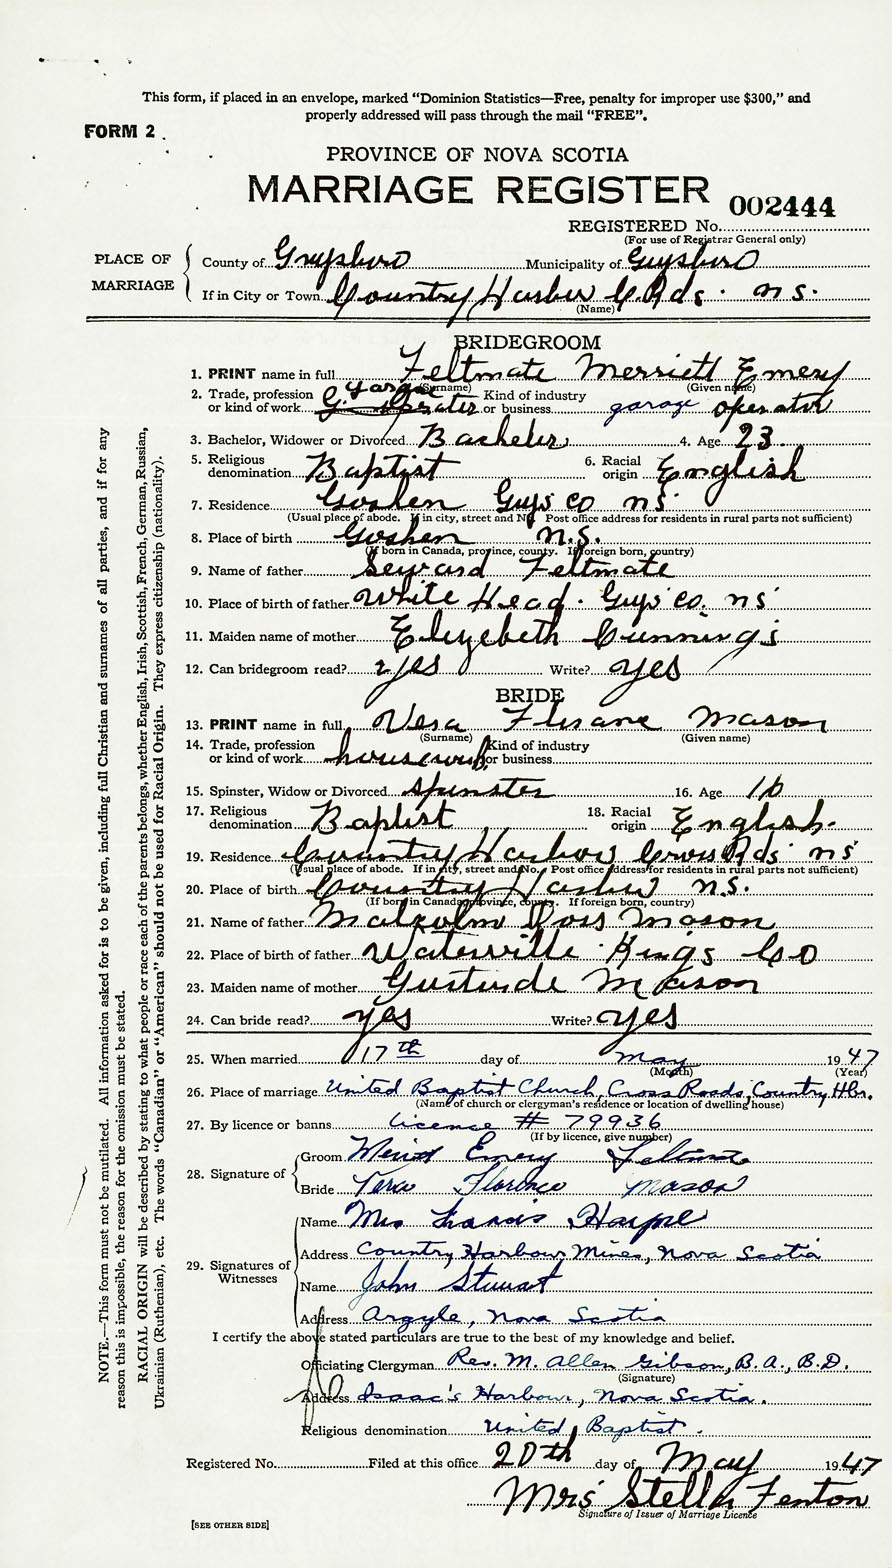 This form, if placed in an envelope, marked “Dominion Statistics—Free, penalty for improper use $300,” and
properly addressed will pass through the mail “FREE”.
FORM 2
PROVINCE OF NOVA SCOTIA
MARRIAGE REGISTER
002444
REGISTERED No.
(For use of Registrar General only)
PLACE OF MARRIAGE
County of Guysboro Municipality of Guysboro
If in City or Town Country Harbor C. Rds. N.S.
(Name)
BRIDEGROOM
1. PRINT name in full Feltmate Merriett Emery
(Surname) (Given name)
2. Trade, profession or kind of work Operator Kind of industry or business garage operator
3. Bachelor, Widower or Divorced Bacheler 4. Age 23
5. Religious denomination Baptist 6. Racial origin English
7. Residence Goshen Guys Co NS
(Usual place of abode. If in city, street and No. Post office address for residents in rural parts not sufficient)
8. Place of birth Goshen N.S.
(If born in Canada, province, county. If foreign born, country)
9. Name of father Seward Feltmate
10. Place of birth of father White Head. Guys Co. NS
11. Maiden name of mother Elizebeth Cunnings
12. Can bridegroom read? yes Write? yes
BRIDE
13. PRINT name in full Vera Mason
(Surname) (Given name)
14. Trade, profession or kind of work housework Kind of industry or business
15. Spinster, Widow or Divorced Spinster 16. Age
17. Religious denomination Baptist 18. Racial origin English.
19. Residence Country Harbor Cross Rds NS
(Usual place of abode. If in city, street and No. Post office address for residents in rural parts not sufficient)
20. Place of birth Country Harbor N.S.
(If born in Canada province, county. If foreign born, country)
21. Name of father Malcolm Ross Mason
22. Place of birth of father Waterville Kings Co
23. Maiden name of mother Mason
24. Can bride read? yes Write? yes
25. When married 17th day of May 1947
(Month) (Year)
26. Place of marriage United Baptist Church, Cross Roads, Country Hbr.
(Name of church or clergyman’s residence or location of dwelling house)
27. By licence or banns licence # 79936
(If by licence, give number)
28. Signature of
Groom Emery Feltmate
Bride Vera Florence Mason
29. Signatures of Witnesses
Name Mrs Harpel
Address Country Harbour Mines, Nova Scotia
Name John Stewart
Address Argyle, Nova Scotia
I certify the above stated particulars are true to the best of my knowledge and belief.
Officiating Clergyman Rev. M. Allen Gibson, B.A., B.D.
(Signature)
Address Isaac's Harbour, Nova Scotia.
Religious denomination United Baptist.
Registered No. Filed at this office 20th day of May 1947
Mrs Stella Fenton
Signature of Issuer of Marriage Licence
[SEE OTHER SIDE]
NOTE.—This form must not be mutilated. All information asked for is to be given, including full Christian and surnames of all parties, and if for any
reason this is impossible, the reason for the omission must be stated.
RACIAL ORIGIN will be described by stating to what people or race each of the parents belongs, whether English, Irish, Scottish, French, German, Russian,
Ukrainian (Ruthenian), etc. The words “Canadian” or “American” should not be used for Racial Origin. They express citizenship (nationality).